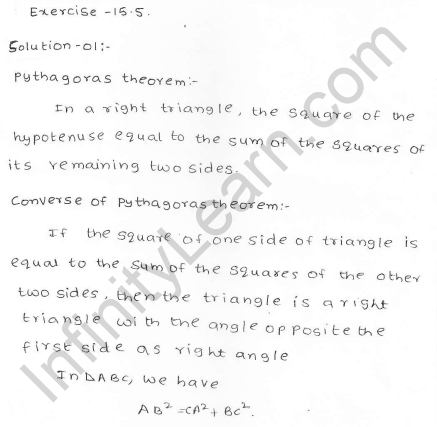 Exercise -15.5.
Solution-01:-
Pythagoras theorem:-
In a right triangle, the square of the
hypotenuse equal to the sum of the squares of
its remaining two sides.
Converse of Pythagoras theorem:-
If the square of one side of triangle is
equal to the sum of the squares of the other
two sides, then the triangle is a right
triangle with the angle opposite the
first side as right angle
In ΔABC, we have
AB² = CA² + BC².
InfinityLearn.com